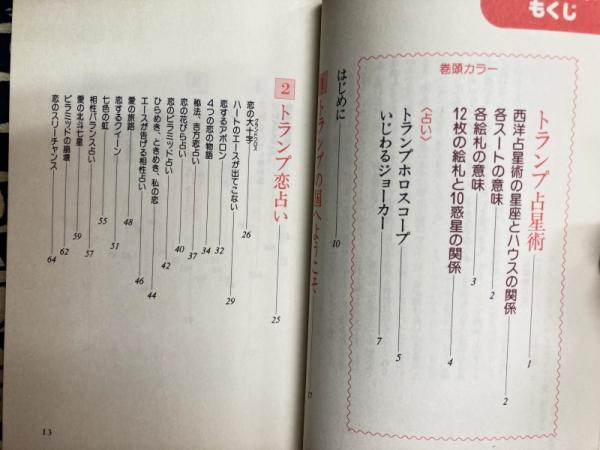 もくじ
巻頭カラー
トランプ占星術 1
西洋占星術の星座とハウスの関係 2
各スートの意味 2
各絵札の意味 3
12枚の絵札と10惑星の関係 4
〈占い〉
トランプホロスコープ 5
いじわるジョーカー 7
はじめに 10
2 トランプ恋占い 25
恋の大十字 グランドクロス 26
ハートのエースが出てこない 29
恋するアポロン 32
4つの恋の物語 34
秘法、吉方恋占い 37
恋の花びら占い 40
恋のピラミッド占い 42
ひらめき、ときめき、私の恋 44
エースが告げる相性占い 46
愛の旅路 48
恋するクイーン 51
七色の虹 55
相性バランス占い 57
愛の北斗七星 59
ピラミッドの崩壊 62
恋のスリーチャンス 64
13